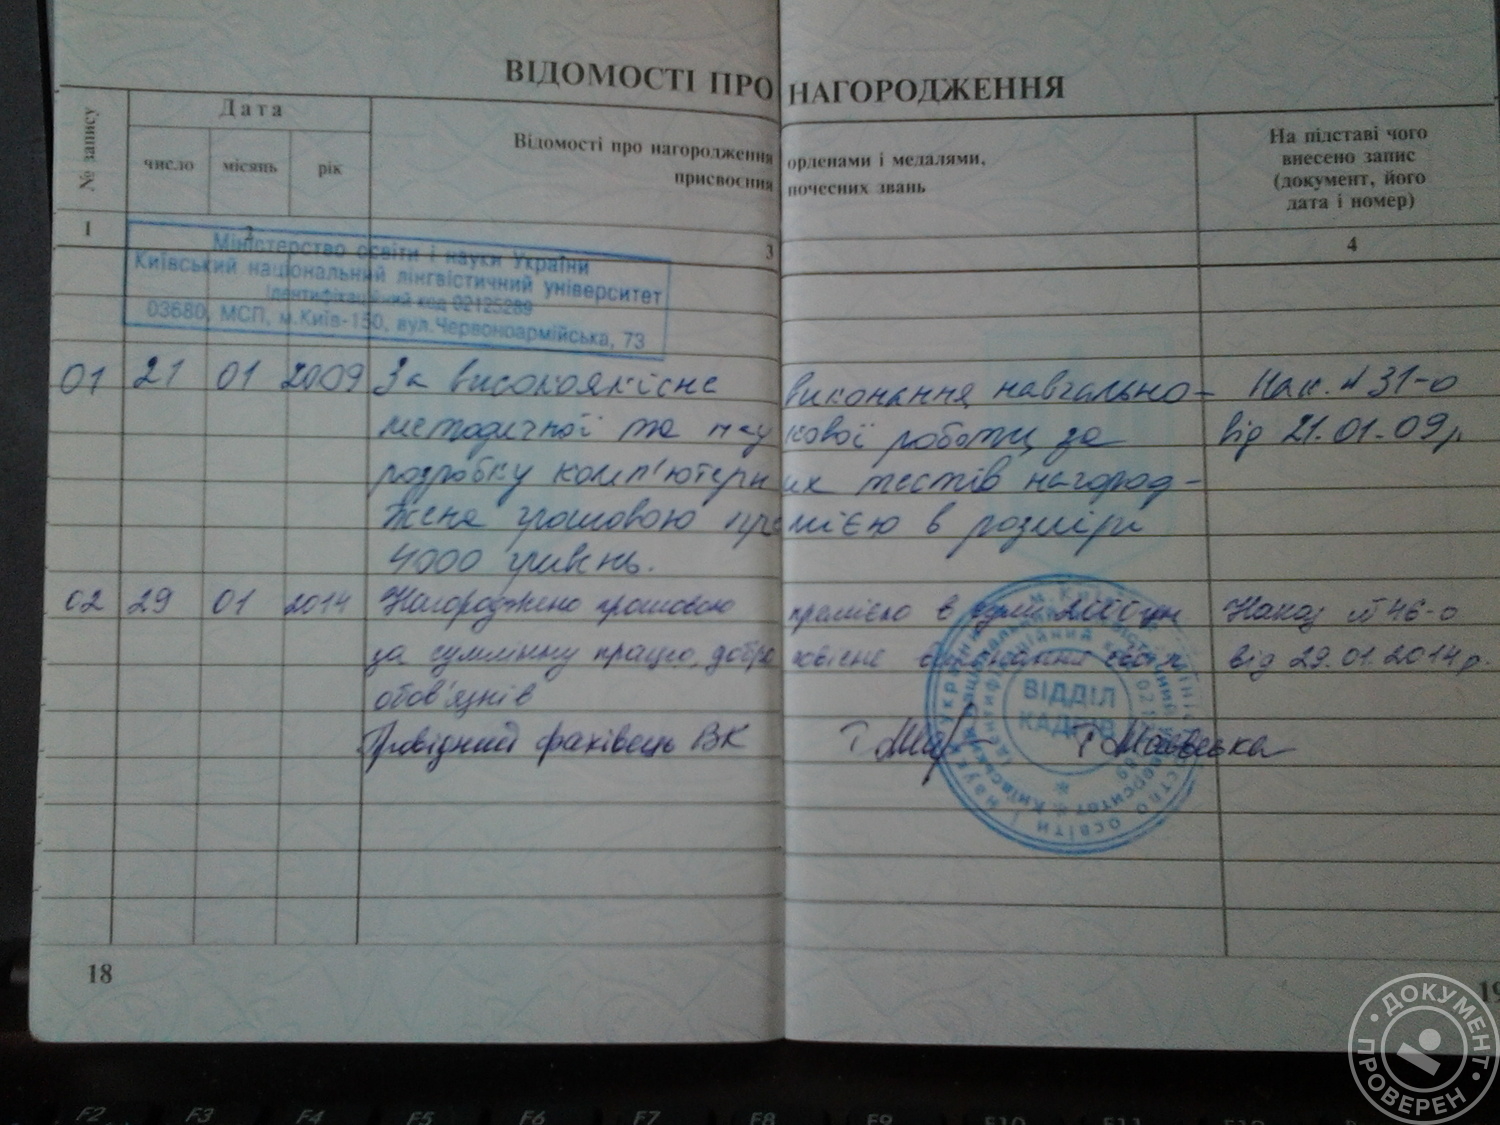 ВІДОМОСТІ ПРО НАГОРОДЖЕННЯ
№ запису
Дата
число місяць рік
Відомості про нагородження орденами і медалями,
присвоєння почесних звань
На підставі чого
внесено запис
(документ, його
дата і номер)
1 2 3 4
Міністерство освіти і науки України
Київський національний лінгвістичний університет
Ідентифікаційний код 02125289
03680, МСП, м.Київ-150, вул.Червоноармійська, 73
01 21 01 2009 За високоякісне виконання навчально- Нак. № 31-о
методичної та наукової роботи, за від 21.01.09р.
розробку комп'ютерних тестів нагород-
жена грошовою премією в розмірі
4000 гривень.
02 29 01 2014 Нагороджено грошовою премією в сумі 2000 грн Наказ № 46-о
за сумлінну працю, добросовісне виконання від 29.01.2014р.
обов'язків
Провідний фахівець ВК
ВІДДІЛ
КАДРІВ
18
19
ДОКУМЕНТ ПРОВЕРЕН
F2 F3 F4 F5 F6 F7 F8 F9 F10 F11 F12